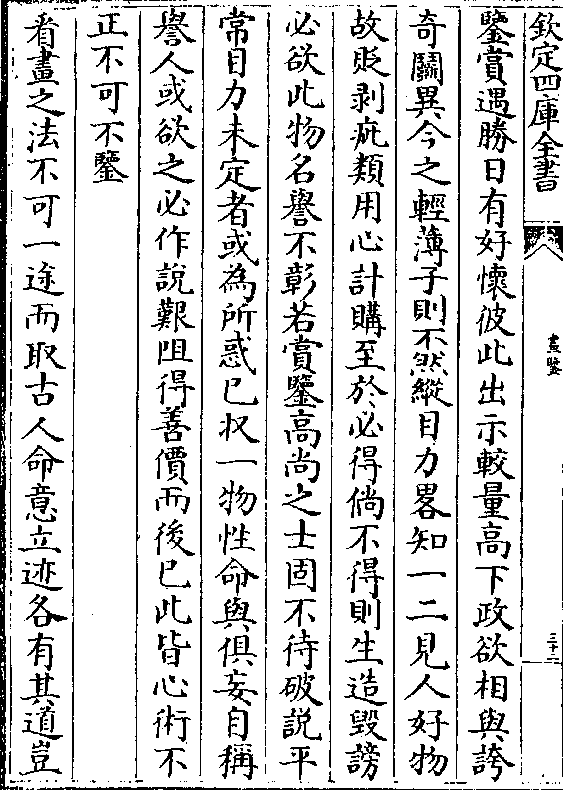 欽定四庫全書
畫鑒
三十二
鑒賞遇勝日有好懷彼此出示較量高下政欲相與誇
奇鬭異今之輕薄子則不然縱目力畧知一二見人好物
故貶剥疵類用心計購至於必得倘不得則生造毀謗
必欲此物名譽不彰若賞鑒高尚之士固不待破說平
常目力未定者或為所惑已収一物性命與俱妄自稱
譽人或欲之必作說艱阻得善價而後已此皆心術不
正不可不鑒
看畫之法不可一途而取古人命意立迹各有其道豈